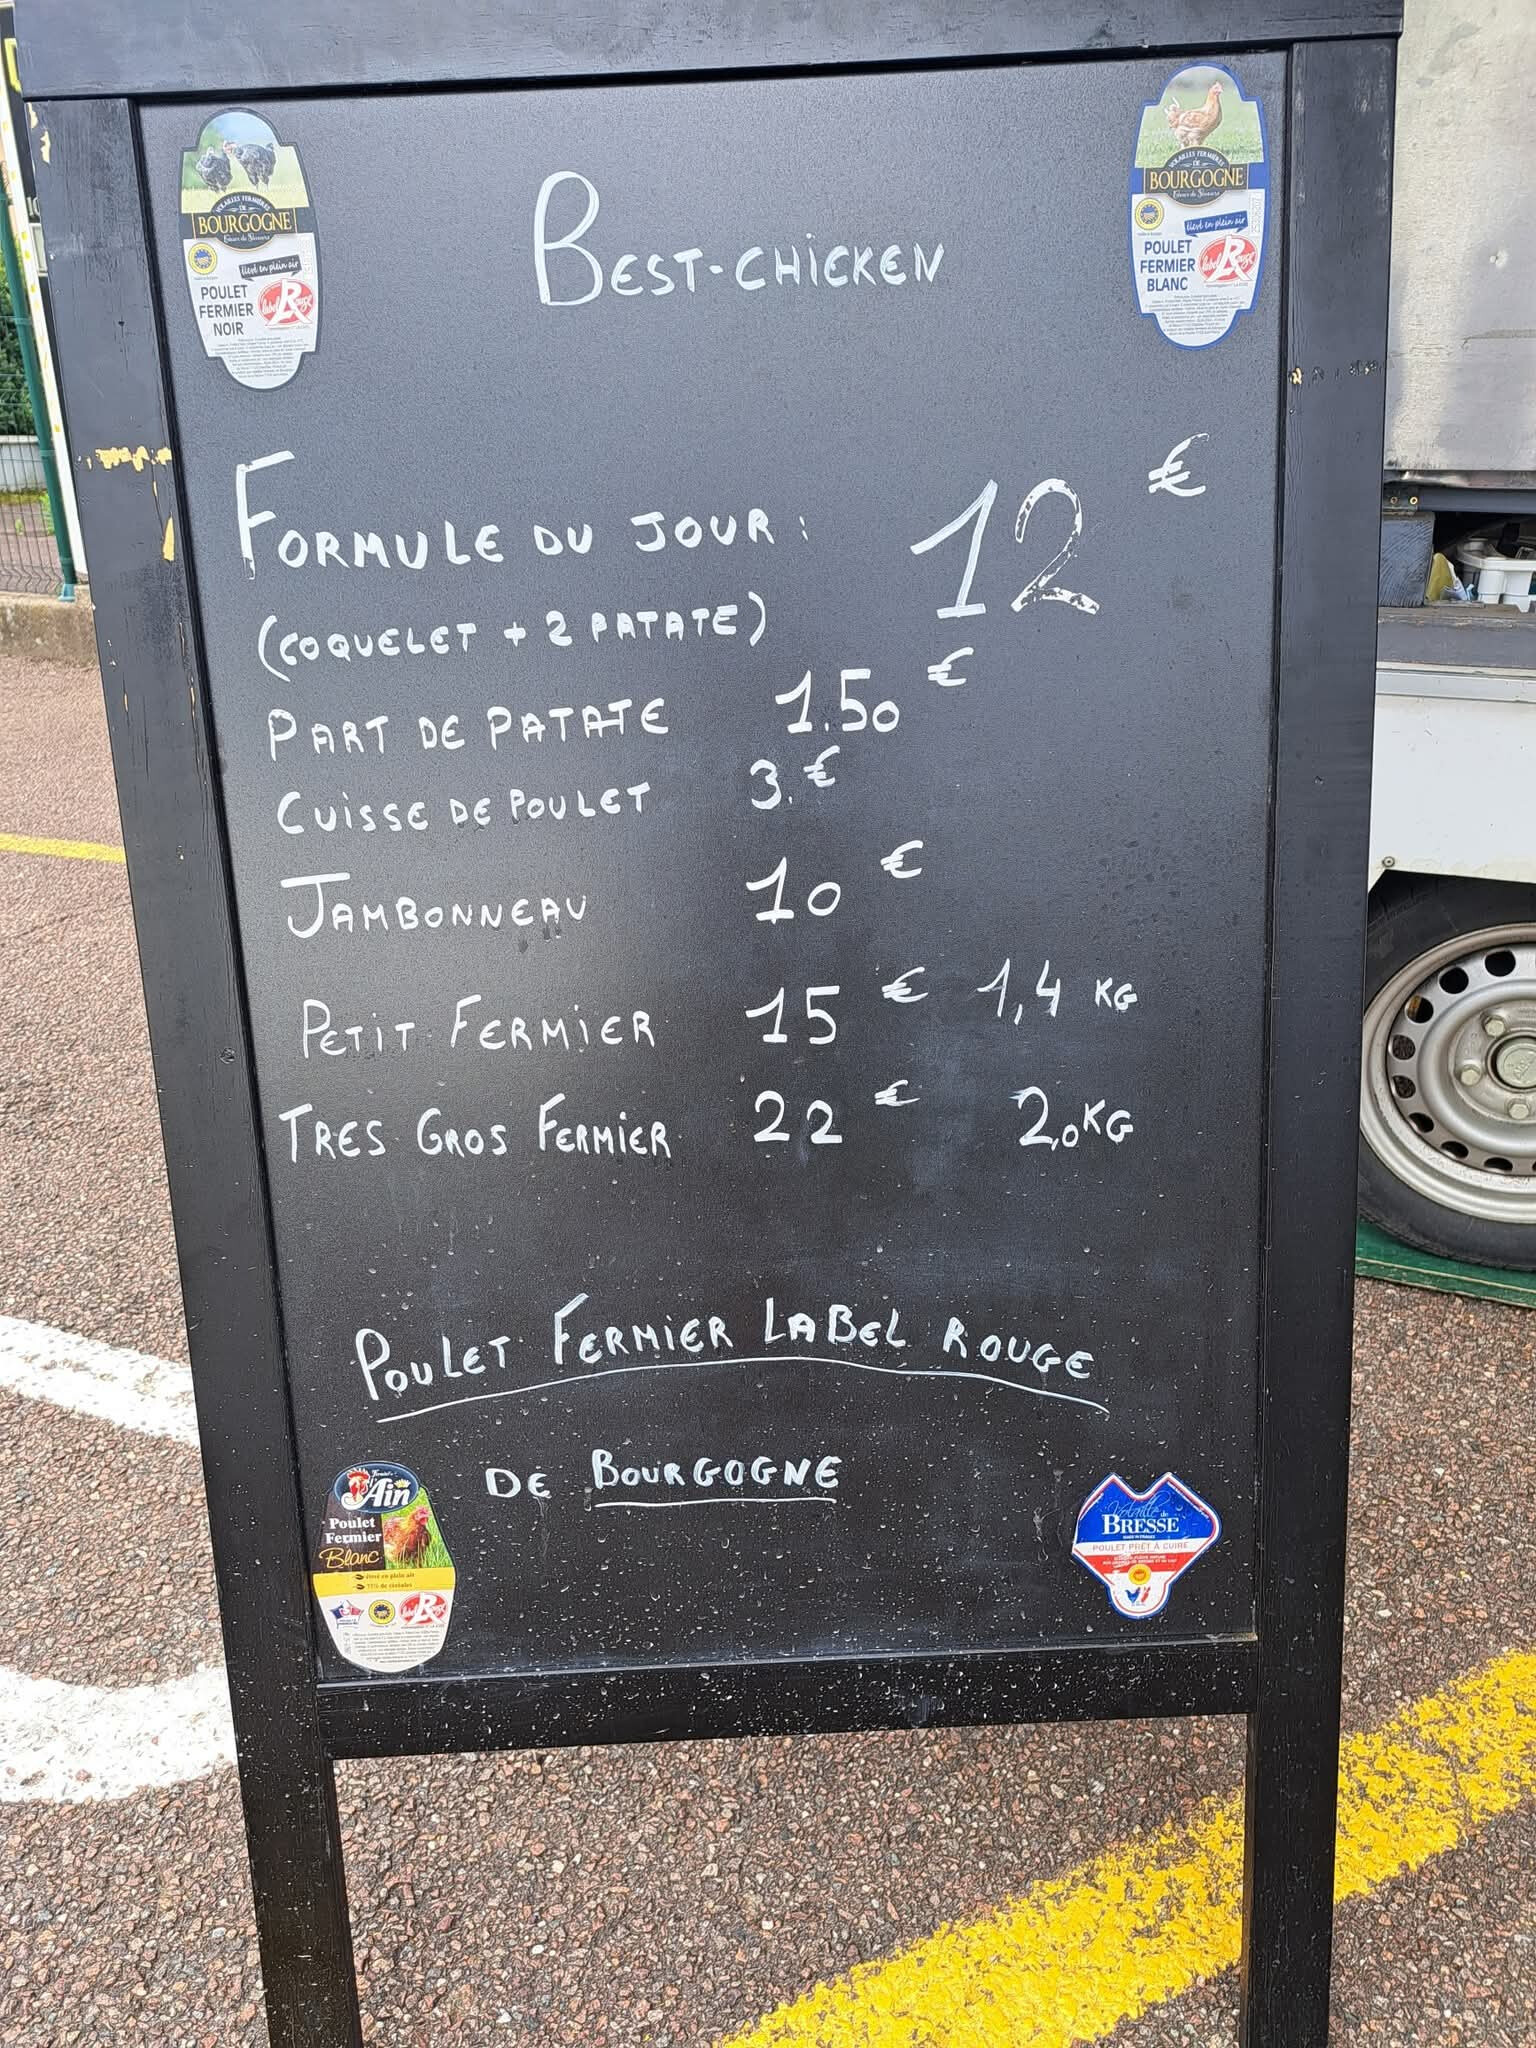 VOLAILLES FERMIÈRES
DE
BOURGOGNE
élevé en plein air
POULET
FERMIER
NOIR
label Rouge
VOLAILLES FERMIÈRES
DE
BOURGOGNE
élevé en plein air
POULET
FERMIER
BLANC
label Rouge
BEST-CHICKEN
FORMULE DU JOUR : 12 €
(COQUELET + 2 PATATE)
PART DE PATATE 1.50 €
CUISSE DE POULET 3.€
JAMBONNEAU 10 €
PETIT FERMIER 15 € 1,4 KG
TRES GROS FERMIER 22 € 2,0 KG
POULET FERMIER LABEL ROUGE
DE BOURGOGNE
l'Ain
Poulet
Fermier
Blanc
élevé en plein air
75% de céréales
label Rouge
Volaille de
BRESSE
POULET PRÊT À CUIRE